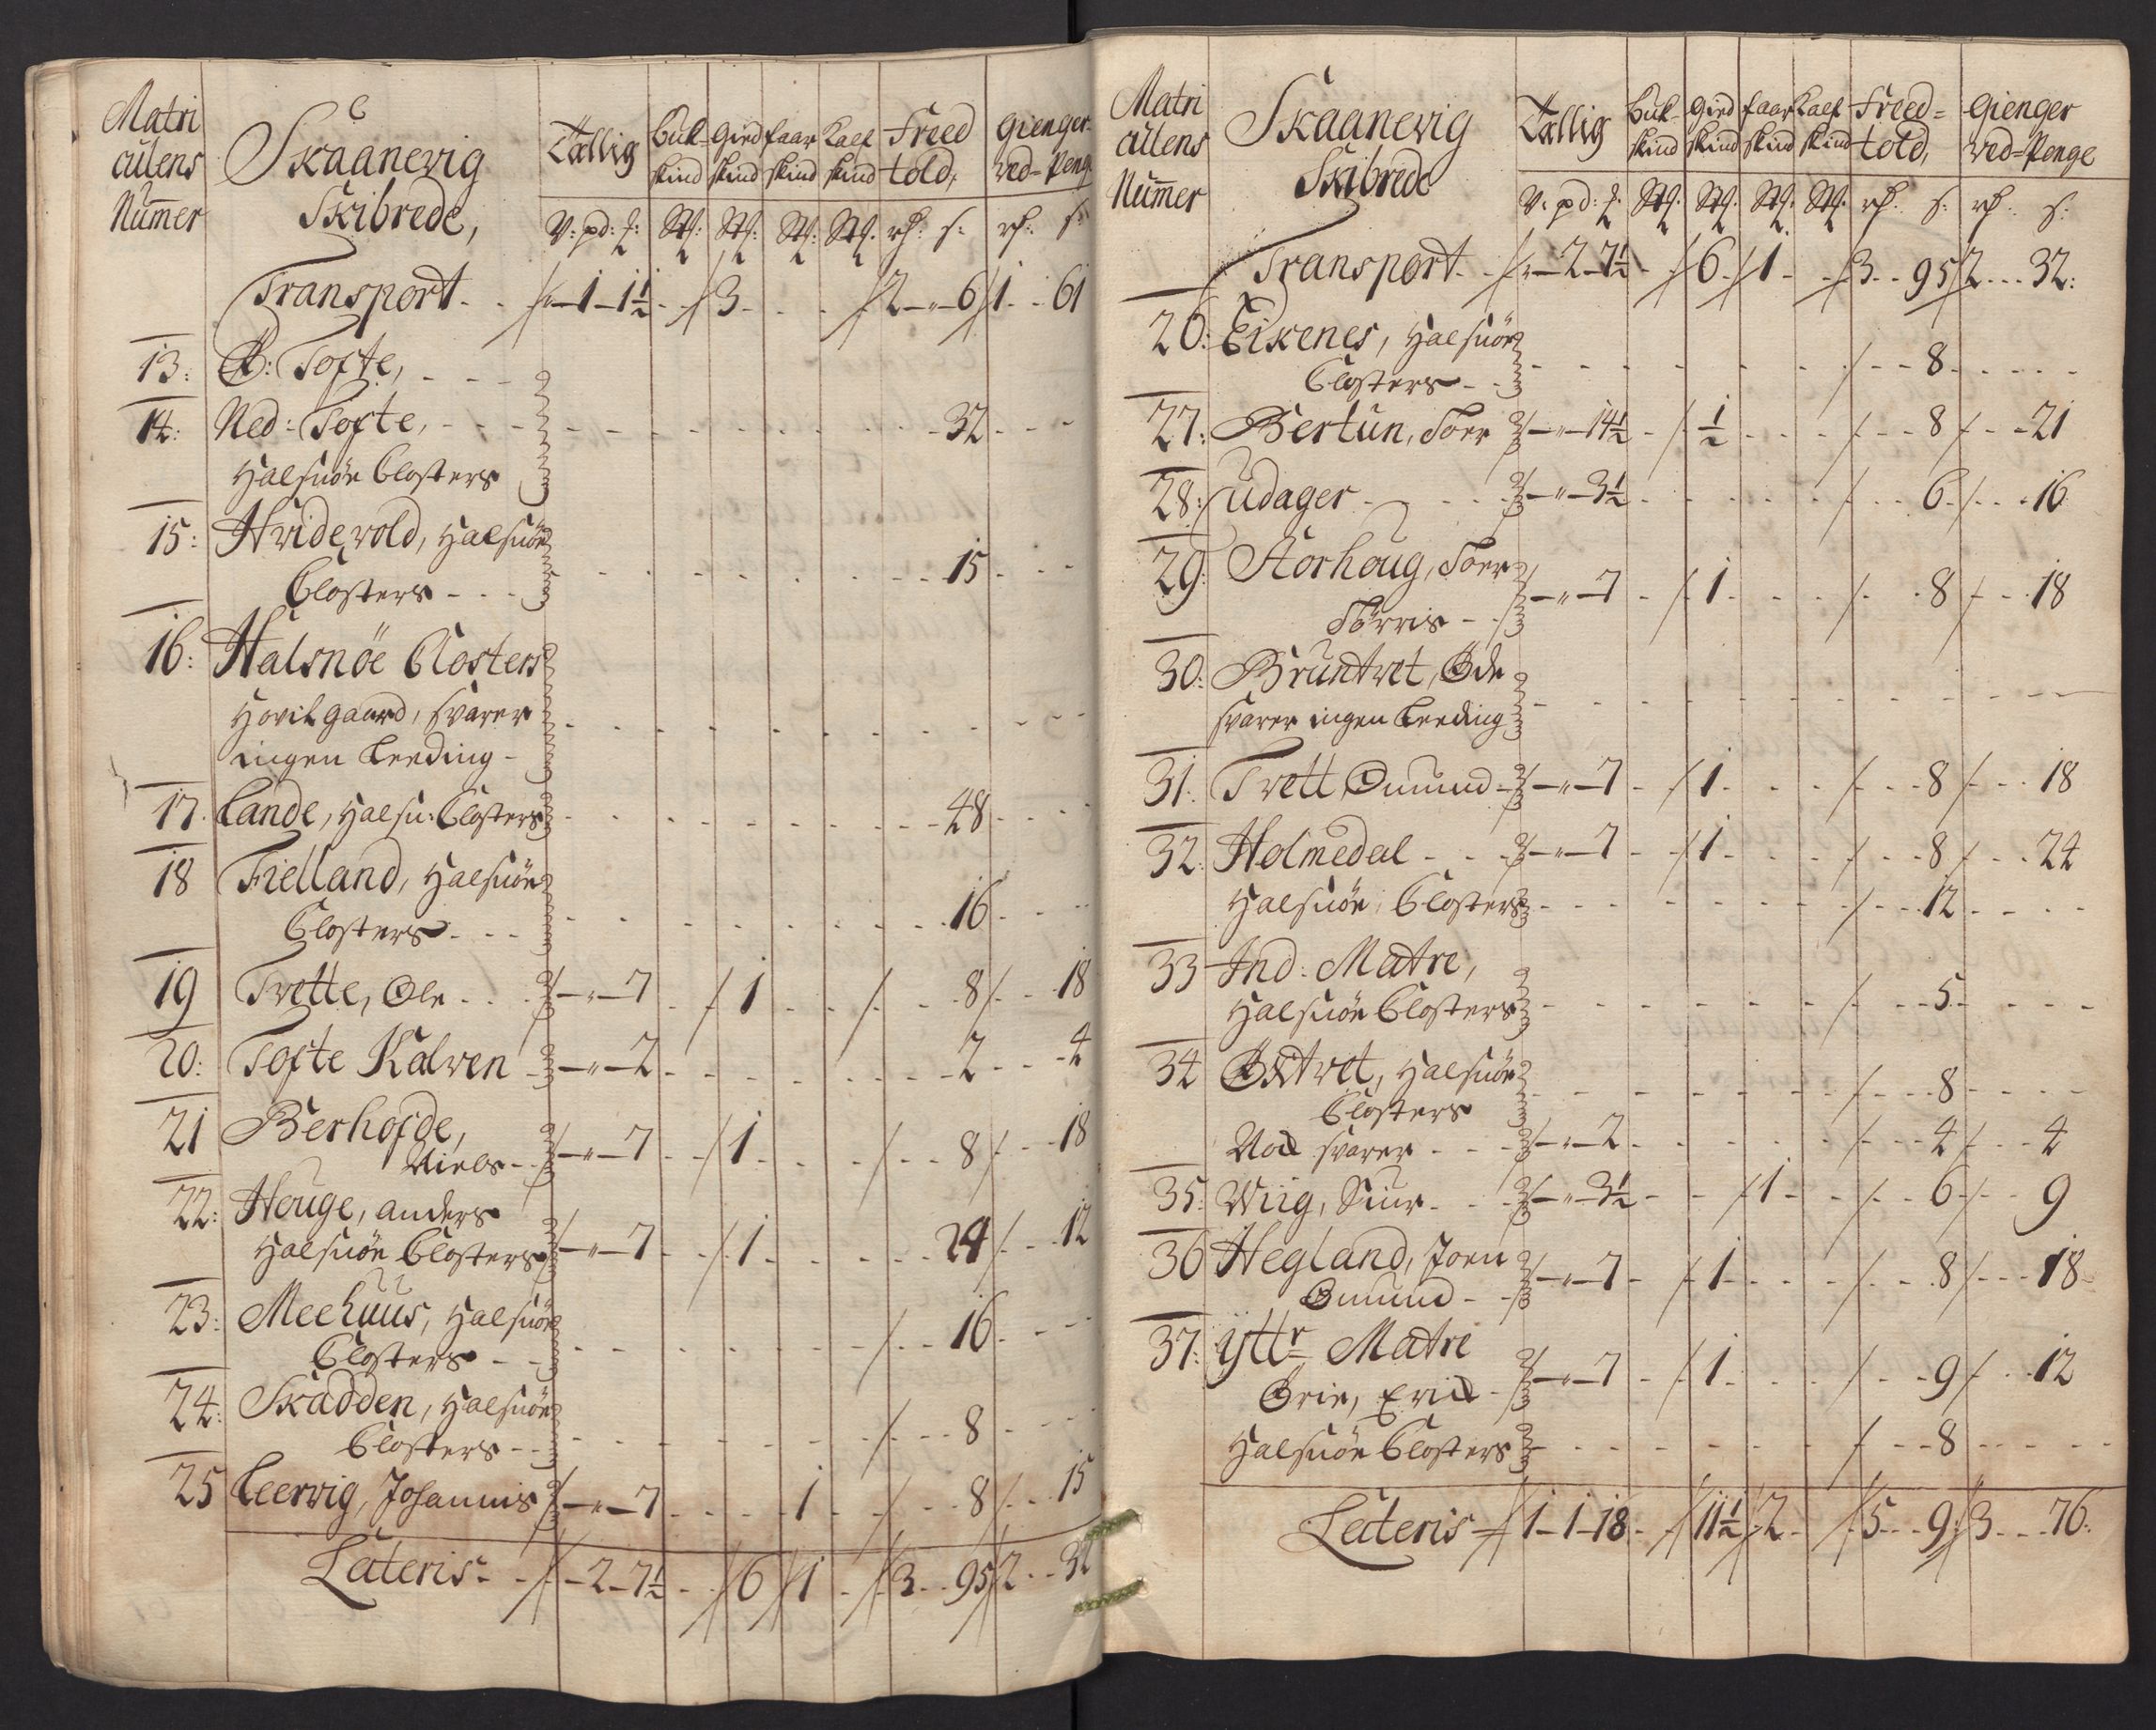 Matri
culens
Nummer
Skaanevig
Skibrede,
Tallig
Buk-
skind
Gied
skind
faar
skind
Kalf
skind
Freed
told,
gienger
ved-Penge
V: pd: Stk: Stk: Stk: Stk: s: s:
Transport - 1 - 1½ 3 2 - 6 1 61
13: Tofte,
14: Ned: Tofte, 32
Halsnön Closters
15: Hvidevold, Halsnön
Closters 15
16: Halsnöe Closters
Hovitgaard, svarer
ingen Leeding
17. Lande, Halsn: Closters 48
18 Fielland, Halsnön
Closters 16
19 Tvette, Ole - 7 1 8 18
20: Tofte Kalven - 2 2 4
21 Berhofde,
Niels - 7 1 8 18
22: Houge, anders
Halsnön Closters - 7 1 24 12
23: Meehuus, Halsnön
Closters 16
24: Skadden, Halsnön
Closters 8
25 Leervig, Johannis - 7 1 8 15
Lateris - 2 - 7½ 6 1 3 95 2 32
Matri
culens
Nummer
Skaanevig
Skibrede
Tallig
Buk-
skind
Gied
skind
faar
skind
Kalf
skind
Freed=
told,
gienger
ved=Penge
V: pd: Stk: Stk: Stk: Stk: s: s:
Transport - 2 - 7½ 6 1 3 95 2 32:
26: Eikenes, Halsnön
Closters 8
27: Bertun, Toer - 14½ ½ 8 21
28: Udager - 3½ 6 16
29: Storhoug, Toer
Törris - 7 1 8 18
30: Bruntvet, Öde
svarer ingen Leeding
31: Tvett Omund - 7 1 8 18
32: Holmedal - 7 1 8 24
Halsnön Closters 12
33 Ind: Matre,
Halsnön Closters 5
34 Halsnön
Closters 8
Nok svarer - 2 4 4
35: Wiig, Siur - 3½ 1 6 9
36 Hegland, Joen
Omund - 7 1 8 18
37: Ytt:r Matre
Brie, Erik - 7 1 9 12
Halsnön Closters 8
Lateris 1 - 1 - 18 11½ 2 5 9 3 76: